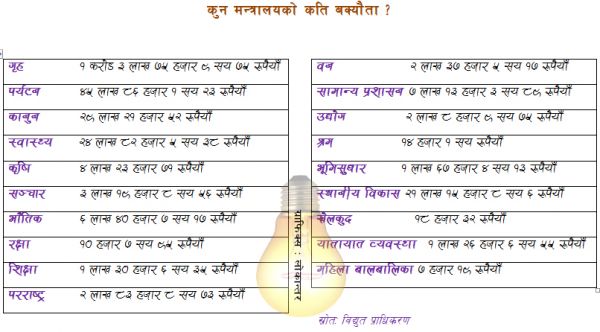 कुन मन्त्रालयको कति बक्यौता ?
गृह १ करोड ३ लाख ७५ हजार ८ सय ७५ रुपैयाँ
पर्यटन ४५ लाख ८६ हजार १ सय २३ रुपैयाँ
कानुन २८ लाख २१ हजार ५२ रुपैयाँ
स्वास्थ्य २४ लाख ८२ हजार ५ सय ३८ रुपैयाँ
कृषि ४ लाख २३ हजार ७१ रुपैयाँ
सञ्चार ३ लाख १८ हजार ८ सय ५६ रुपैयाँ
भौतिक ६ लाख ४० हजार ७ सय १७ रुपैयाँ
रक्षा १० हजार ७ सय ८५ रुपैयाँ
शिक्षा १ लाख ३० हजार ६ सय ३५ रुपैयाँ
परराष्ट्र २ लाख ८३ हजार ८ सय ७३ रुपैयाँ
वन २ लाख ३७ हजार ५ सय १७ रुपैयाँ
सामान्य प्रशासन ७ लाख १३ हजार ३ सय ८८ रुपैयाँ
उद्योग २ लाख ८ हजार ८ सय ७५ रुपैयाँ
श्रम १४ हजार १ सय रुपैयाँ
भूमिसुधार १ लाख ६७ हजार ४ सय १३ रुपैयाँ
स्थानीय विकास २१ लाख १५ हजार ८ सय ६ रुपैयाँ
खेलकुद १८ हजार ३२ रुपैयाँ
यातायात व्यवस्था १ लाख २६ हजार ६ सय ५५ रुपैयाँ
महिला बालबालिका ७ हजार १८ रुपैयाँ
ग्राफिक्स : लोकान्तर
स्रोत: विद्युत प्राधिकरण